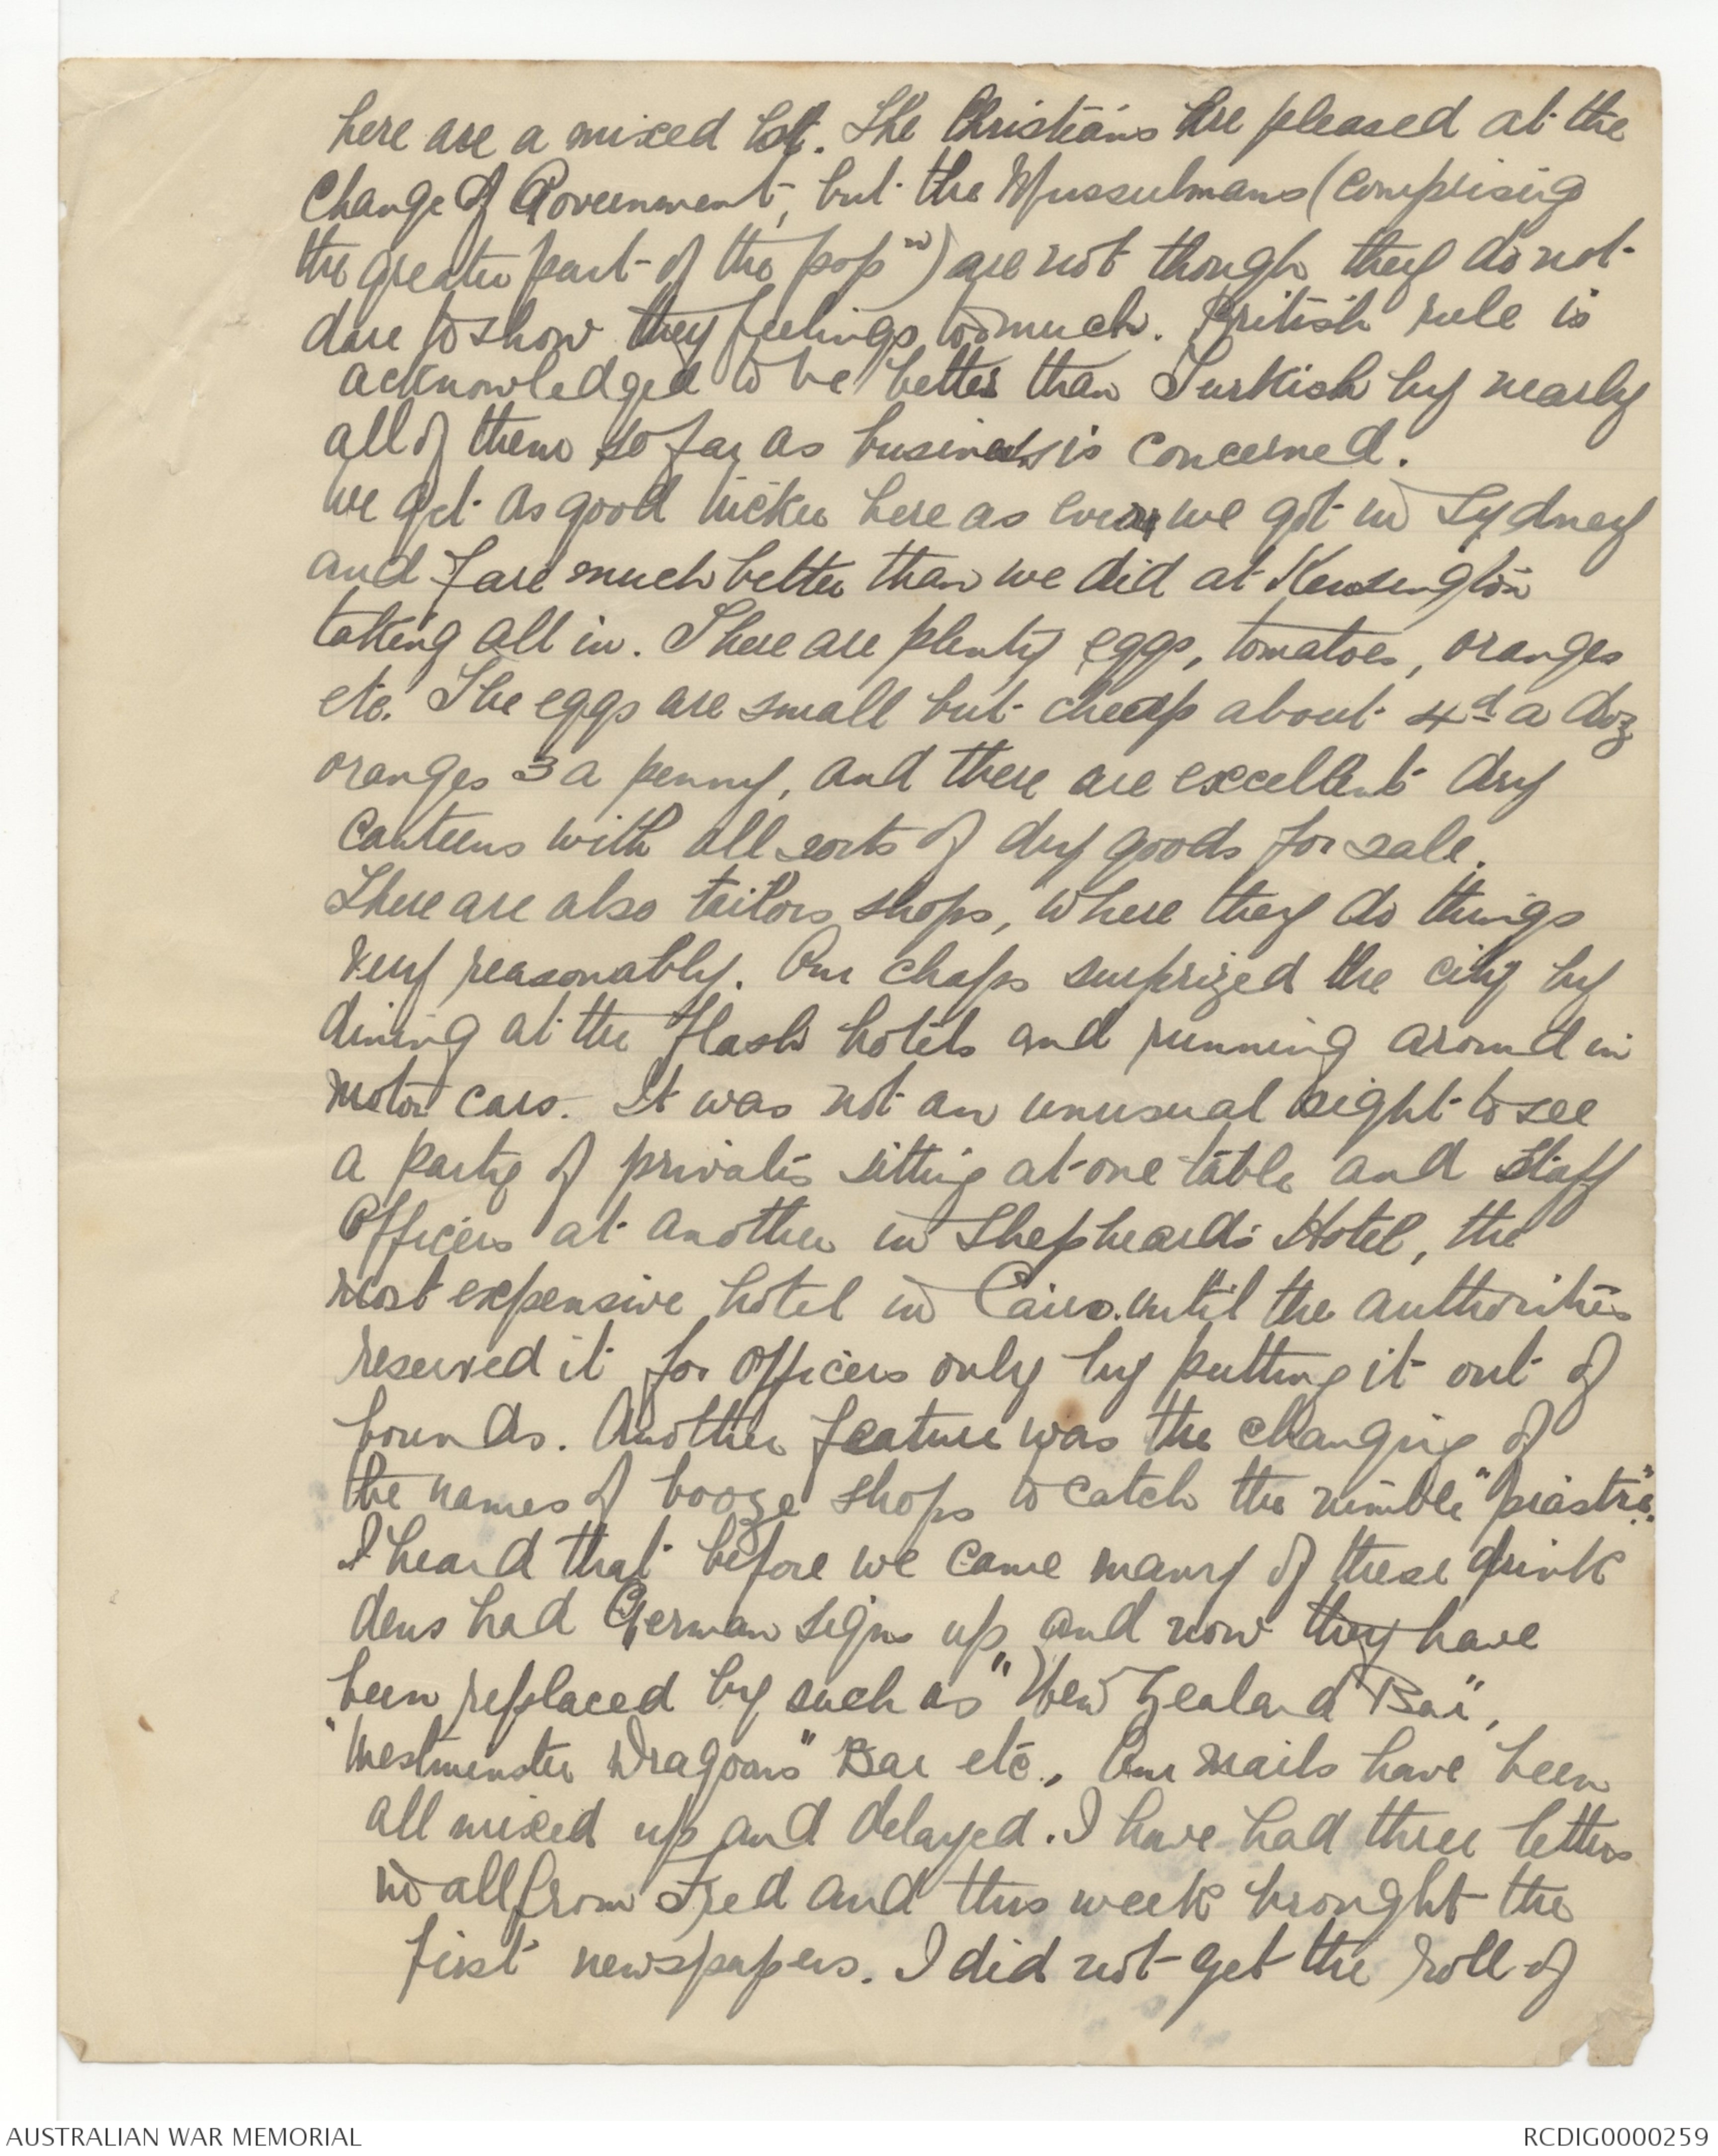 here are a mixed lot. The Christians are pleased at the
Change of Government, but the Mussulmans (comprising
the greater part of the popn) are not though they do not
dare to show they feelings too much. British rule is
acknowledged to be better than Turkish by nearly
all of them so far as business is concerned.
we get as good tucker here as ever we got in Sydney
and fare much better than we did at Kensington
taking all in. There are plenty eggs, tomatoes, oranges
etc. The eggs are small but cheap about 4d a doz
oranges 3 a penny, and there are excellent dry
canteens with all sorts of dry goods for sale.
There are also tailors shops, where they do things
very reasonably. Our chaps surprized the city by
dining at the flash hotels and running around in
motor cars. It was not an unusual sight to see
a party of privates sitting at one table and Staff
Officers at another in Shepheards Hotel, the
most expensive hotel in Cairo. until the authorities
reserved it for officers only by putting it out of
bounds. Another feature was the changing of
the names of booze shops to catch the nimble "piastre".
I heard that before we came many of these drink
dens had German signs up, and now they have
been replaced by such as "New Zealand Bar",
"Westminster Dragoons" Bar etc., Our mails have been
all mixed up and delayed. I have had three letters
in all from Fred and this week brought the
first newspapers. I did not get the roll of
AUSTRALIAN WAR MEMORIAL
RCDIG0000259